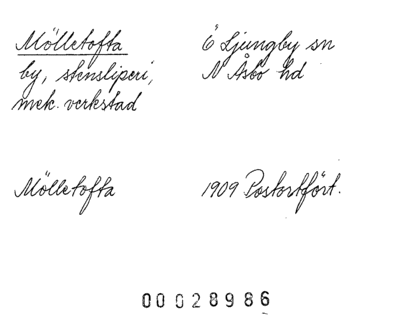 Mölletofta
by, stensliperi,
mek. verkstad
Ö Ljungby sn
N Åsbo hd
Mölletofta
1909 Postortfört.
00028986